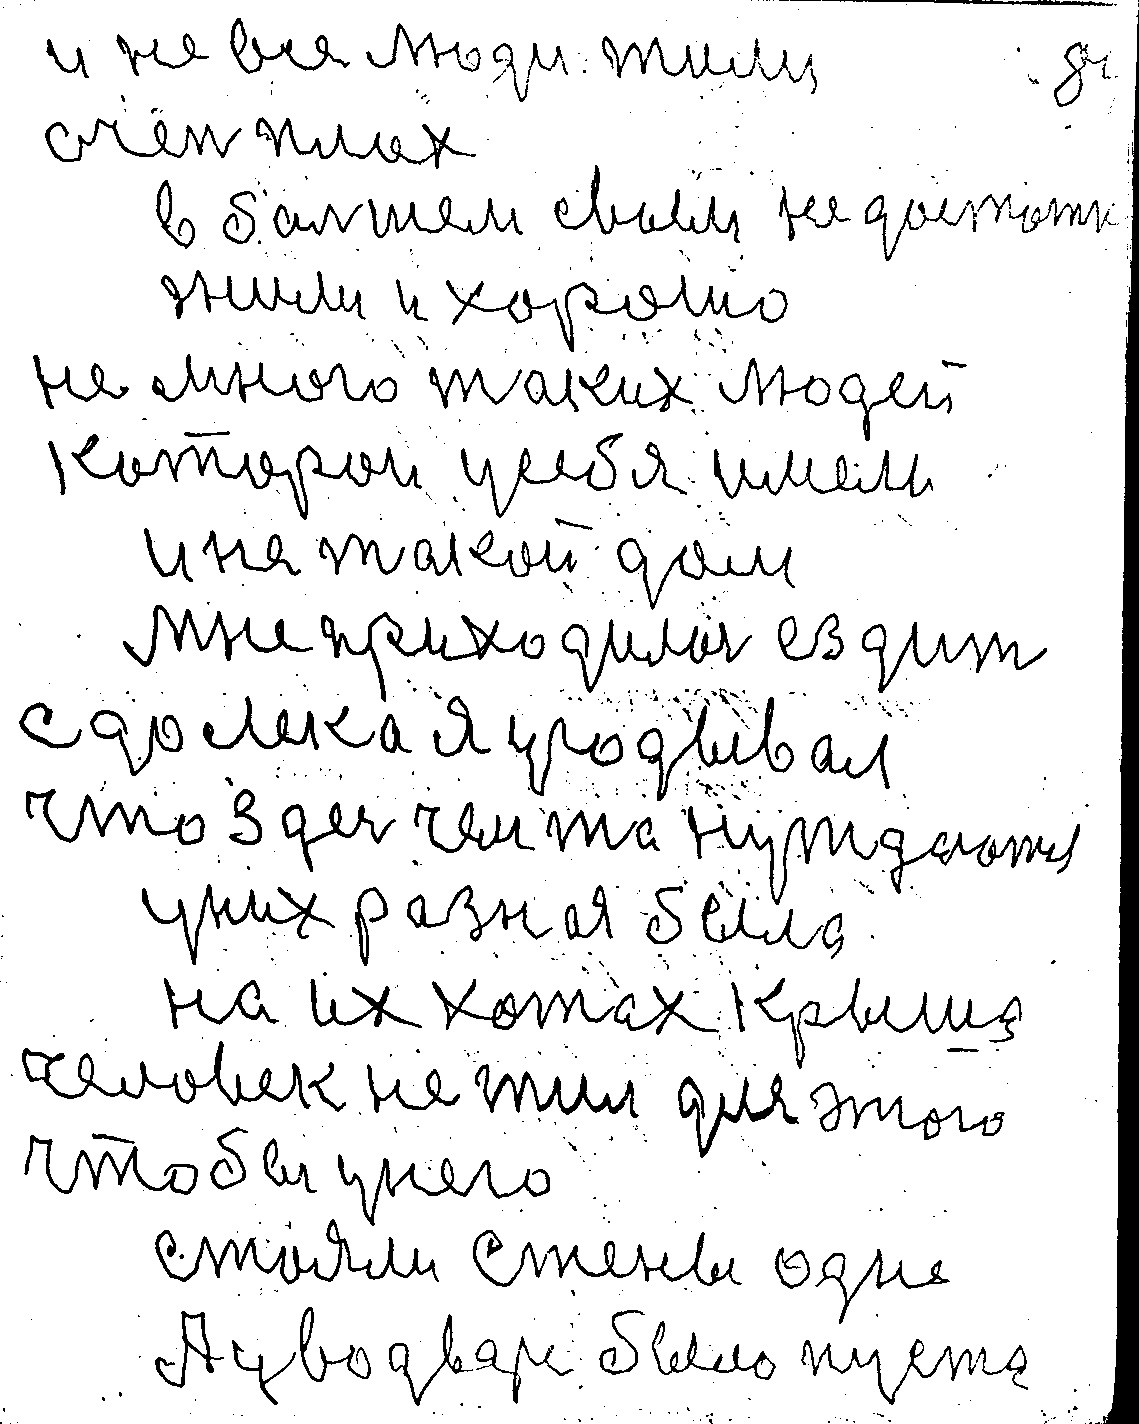 и не все люди жили
очен плох
в балшем своем недостатк
жили и хорошо
не много таких людей
которои усебя имели
и не такой дом
мне приходилос ездит
с далека я угодывал
что здес чемта нуждаютя
уних разная была
на их хатах крыша
человек не жил для этого
чтобы унего
стояли стены одне
А у во дваре было пуста